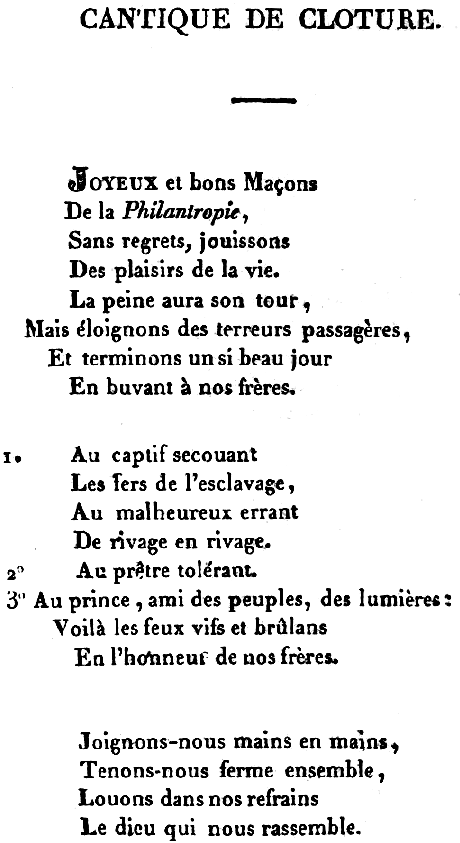 CANTIQUE DE CLOTURE.
JOYEUX et bons Maçons
De la Philantropie,
Sans regrets, jouissons
Des plaisirs de la vie.
La peine aura son tour,
Mais éloignons des terreurs passagères,
Et terminons un si beau jour
En buvant à nos frères.
1. Au captif secouant
Les fers de l'esclavage,
Au malheureux errant
De rivage en rivage.
2° Au prêtre tolérant.
3° Au prince, ami des peuples, des lumières:
Voilà les feux vifs et brûlans
En l'honneur de nos frères.
Joignons-nous mains en mains,
Tenons-nous ferme ensemble,
Louons dans nos refrains
Le dieu qui nous rassemble.